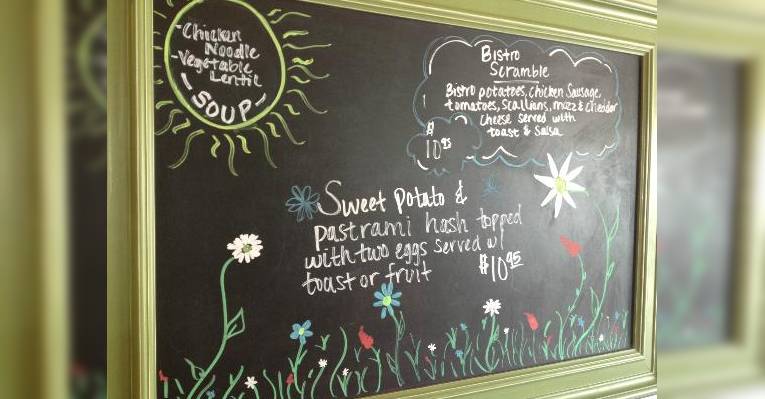 -Chicken
Noodle
-Vegetable
Lentil
-SOUP-
Bistro
Scramble
Bistro potatoes, chicken Sausage,
tomatoes, Scallians, muzz & cheddar
cheese served with
toast & Salsa
$10.95
Sweet Potato &
pastrami hash topped
with two eggs served w/
toast or fruit $10.95